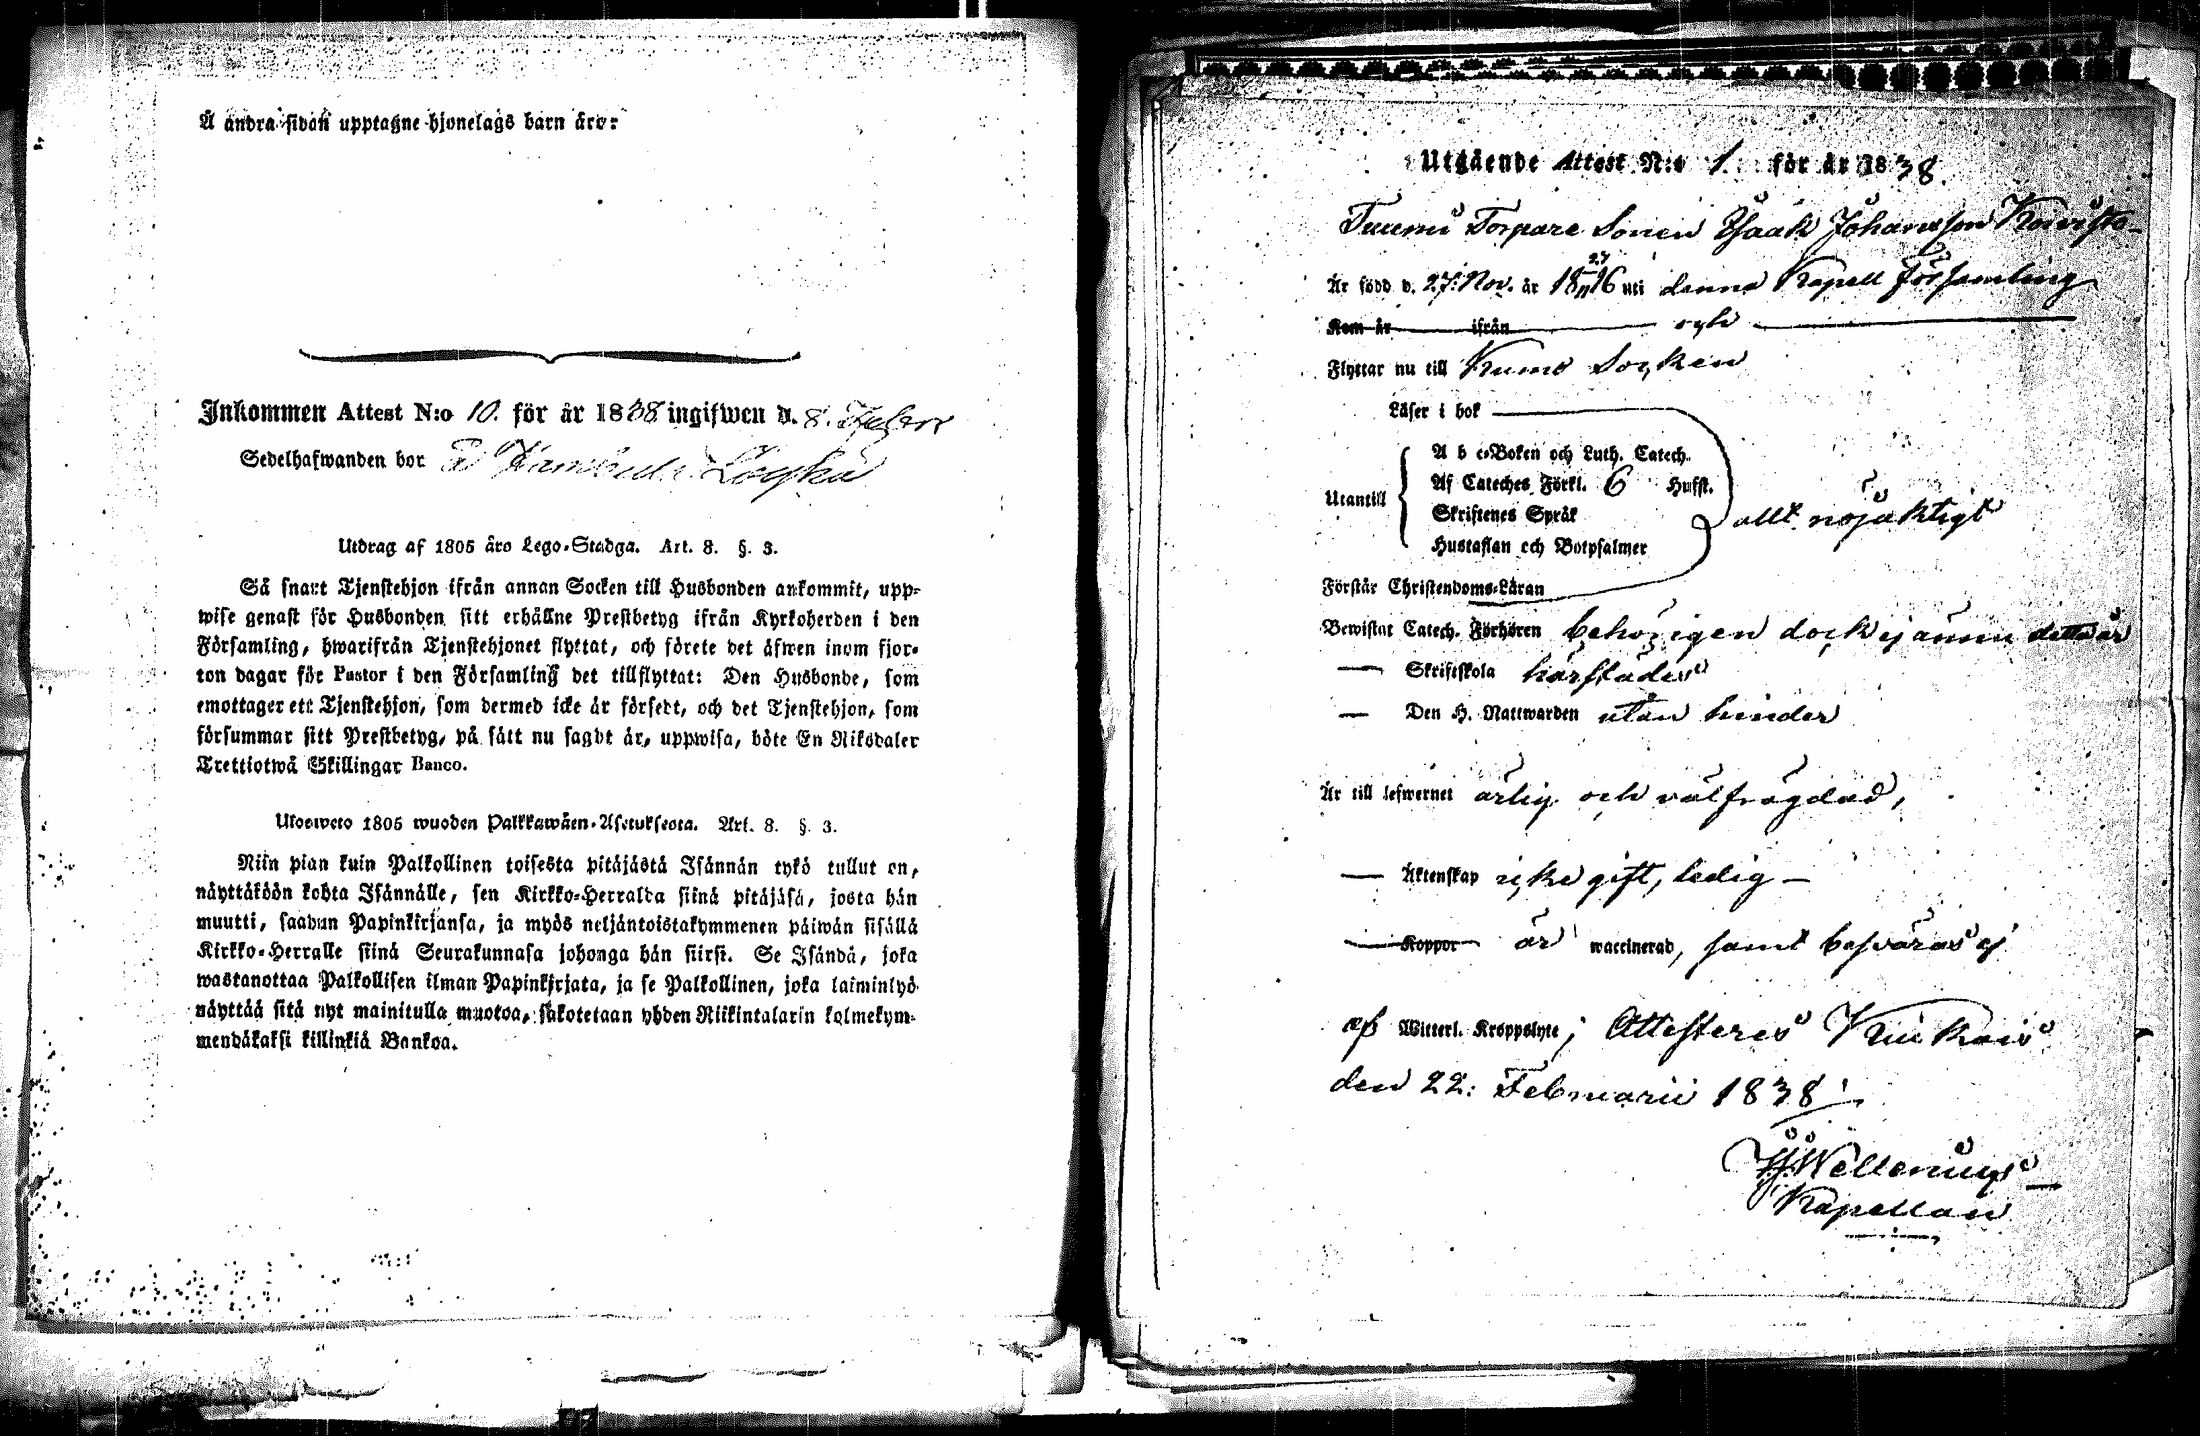 Å andra sidan upptagne hjonelags barn äro:
Inkommen Attest N:o 10. för år 1838 ingifwen d. 8.
Sedelhafwanden bor
Utdrag af 1805 års Lego-Stadga. Art. 8. §. 3.
Så snart Tjenstehjon ifrån annan Socken till Husbonden ankommit, upp-
wise genast för Husbonden sitt erhållne Prestbetyg ifrån Kyrkoherden i den
Församling, hwarifrån Tjenstehjonet flyttat, och förete det äfwen inom fjor-
ton dagar för Pastor i den Församling det tillflyttat: Den Husbonde, som
emottager ett Tjenstehjon, som dermed icke är försedt, och det Tjenstehjon, som
försummar sitt Prestbetyg, på sätt nu sagdt är, uppwisa, böte En Riksdaler
Trettiotwå Skillingar Banco.
Utosweto 1805 wuoden Palkkawäen-Asetuksesta. Art. 8. §. 3.
Niin pian kuin Palkollinen toisesta pitäjästä Isännän tykö tullut on,
näyttäköön kohta Isännälle, sen Kirkko-Herralda siinä pitäjäsä, josta hän
muutti, saadun Papinkirjansa, ja myös neljäntoistakymmenen päiwän sisällä
Kirkko-Herralle siinä Seurakunnasa johonga hän siirsi. Se Isändä, joka
wastanottaa Palkollisen ilman Papinkirjata, ja se Palkollinen, joka laiminlyö
näyttää sitä nyt mainitulla muotoa, sakotetaan yhden Riikintalarin kolmekym-
mendäkaksi killinkiä Bankoa.
Utgående Attest N:o 1. för år 1838.
Torpare Sonen Isaak Johansson Koivisto
Är född d. 27: Nov. år 18 27/11 16 uti denna Kapell Församling
Kom år ifrån och
Flyttar nu till Kumo Socken
Läser i bok
A b c-Boken och Luth. Catech.
Utantill Af Cateches Förkl. 6 Hufst. allt nöjaktigt
Skriftenes Språk
Hustaflan och Botpsalmer
Förstår Christendoms-Läran
Bewistat Catech. Förhören behörigen dock ej ännu detta år
— Skriftskola härstädes
— Den H. Nattwarden utan hinder
Är till lefwernet ärlig och välfrägdad,
— Äktenskap icke gift, ledig —
— Koppor är waccinerad, samt besväras ej
af Witterl. Kroppslyte; Attesteras
den 22: Februarii 1838.
Kapellan